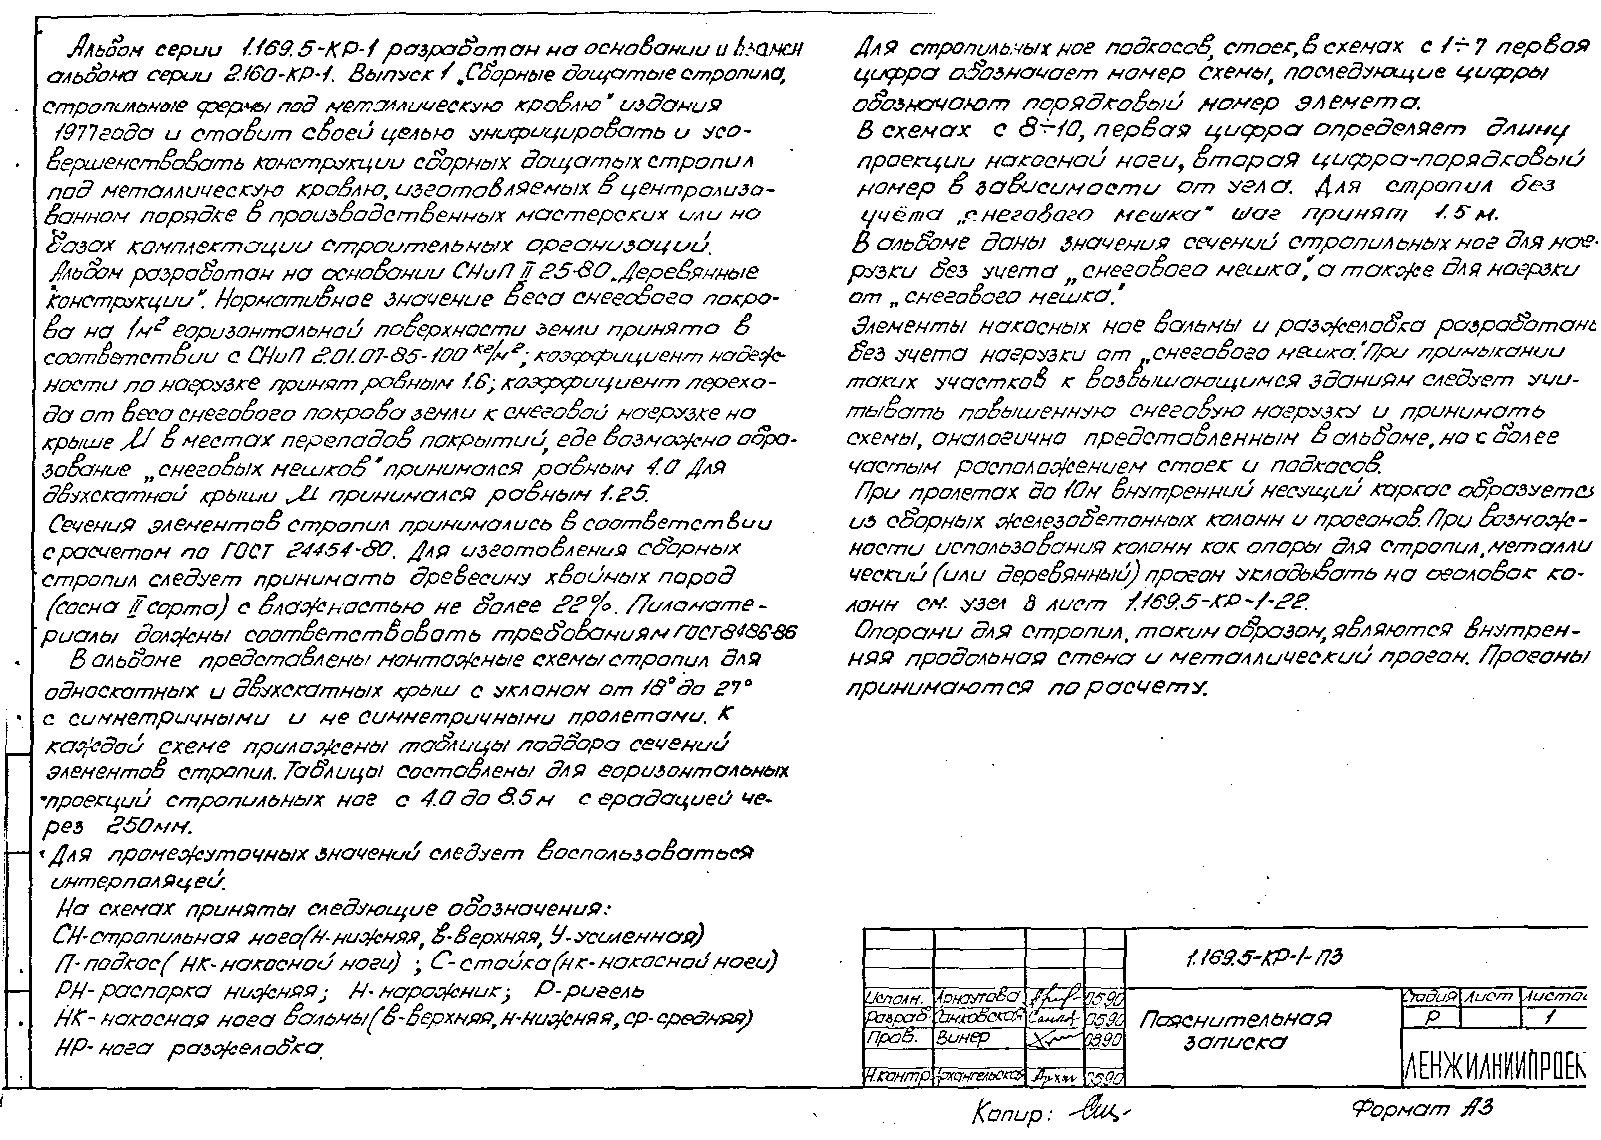 Альбом серии 1.169.5-КР-1 разработан на основании и взамен
альбома серии 2.160-КР-1. Выпуск 1 „Сборные дощатые стропила,
стропильные фермы под металлическую кровлю" издания
1977года и ставит своей целью унифицировать и усо-
вершенствовать конструкции сборных дощатых стропил
под металлическую кровлю, изготовляемых в централизо-
ванном порядке в производственных мастерских или на
базах комплектации строительных организаций.
Альбом разработан на основании СНиП II 25-80 „Деревянные
конструкции". Нормативное значение веса снегового покро-
ва на 1м² горизонтальной поверхности земли принято в
соответствии с СНиП 2.01.07-85-100 кг/м²; коэффициент надеж-
ности по нагрузке принят равным 1.6; коэффициент перехо-
да от веса снегового покрова земли к снеговой нагрузке на
крыше μ в местах перепадов покрытий, где возможно обра-
зование „снеговых мешков" принимался равным 4.0 Для
двухскатной крыши μ принимался равным 1.25.
Сечения элементов стропил принимались в соответствии
с расчетом по ГОСТ 24454-80. Для изготовления сборных
стропил следует принимать древесину хвойных пород
(сосна II сорта) с влажностью не более 22%. Пиломате-
риалы должны соответствовать требованиям ГОСТ 8486-86
В альбоме представлены монтажные схемы стропил для
односкатных и двухскатных крыш с уклоном от 18° до 27°
с симметричными и не симметричными пролетами. К
каждой схеме приложены таблицы подбора сечений
элементов стропил. Таблицы составлены для горизонтальных
проекций стропильных ног с 4.0 до 8.5м с градацией че-
рез 250мм.
Для промежуточных значений следует воспользоваться
интерполяцей.
На схемах приняты следующие обозначения:
СН-стропильная нога(Н-нижняя, в-верхняя, У-усиленная)
П-подкос( НК-накосной ноги) ; С-стойка(нк-накосной ноги)
РН-распорка нижняя; Н-нарожник; Р-ригель
НК-накосная нога вальмы(в-верхняя, н-нижняя, ср-средняя)
НР-нога разжелобка.
Для стропильных ног подкосов, стоек, в схемах с 1÷7 первая
цифра обозначает номер схемы, последующие цифры
обозначают порядковый номер элемета.
В схемах с 8÷10, первая цифра определяет длину
проекции накосной ноги, вторая цифра-порядковый
номер в зависимости от угла. Для стропил без
учёта „снегового мешка" шаг принят 1.5 м.
В альбоме даны значения сечений стропильных ног для наг-
рузки без учета „снегового мешка", а также для нагрзки
от „снегового мешка."
Элементы накосных ног вальмы и разжелобка разработаны
без учета нагрузки от „снегового мешка." При примыкании
таких участков к возвышающимся зданиям следует учи-
тывать повышенную снеговую нагрузку и принимать
схемы, аналогично представленным в альбоме, но с более
частым расположением стоек и подкосов.
При пролетах до 10м внутренний несущий каркас образуется
из сборных железобетонных колонн и прогонов. При возмож-
ности использования колонн как опоры для стропил, металли
ческий (или деревянный) прогон укладывать на оголовак ко-
лонн см. узел 8 лист 1.169.5-КР-1-22.
Опорами для стропил, таким образом, являются внутрен-
няя продольная стена и металлический прогон. Прогоны
принимаются по расчету.
1.169.5-КР-1-ПЗ
Исполн. Арнаутова 05.90
Разраб Ганковская 05.90
Пров. Винер 03.90
Н.контр Архангельская 05.90
Пояснительная
записка
Стадия Лист Листов
Р 1
ЛЕНЖИЛНИИПРОЕК
Копир:
Формат А3